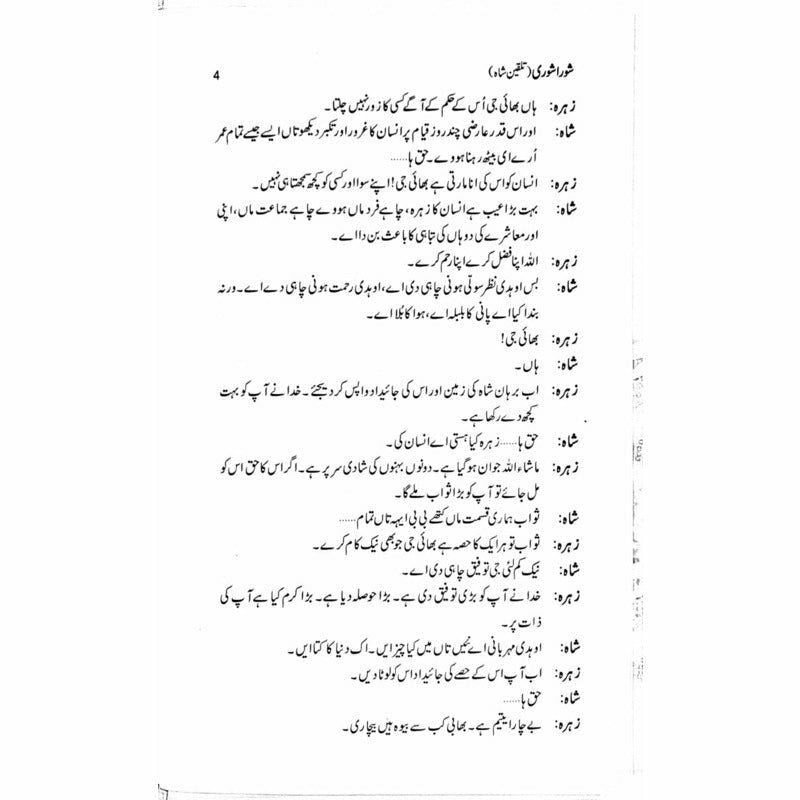 شورا شوری (تلقین شاہ) 4
زہرہ: ہاں بھائی جی اُس کے حکم کے آگے کسی کا زور نہیں چلتا۔
شاہ: اور اس قدر عارضی چند روز قیام پر انسان کا غرور اور تکبر دیکھو تاں ایسے جیسے تمام عمر
اُرے ای بیٹھ رہنا ہووے۔ حق ہا......
زہرہ: انسان کو اس کی انا مارتی ہے بھائی جی! اپنے سوا اور کسی کو کچھ سمجھتا ہی نہیں۔
شاہ: بہت بڑا عیب ہے انسان کا زہرہ، چاہے فرد ماں ہووے چاہے جماعت ماں، اپنی
اور معاشرے کی دوہاں کی تباہی کا باعث بن دا اے۔
زہرہ: اللہ اپنا فضل کرے اپنا رحم کرے۔
شاہ: بس اوہدی نظر سولّی ہونی چاہی دی اے، اوہدی رحمت ہونی چاہی دے اے۔ ورنہ
بندا کیا اے پانی کا بلبلہ اے، ہوا کا بُلا اے۔
زہرہ: بھائی جی!
شاہ: ہاں۔
زہرہ: اب برہان شاہ کی زمین اور اس کی جائیداد واپس کر دیجئے۔ خدا نے آپ کو بہت
کچھ دے رکھا ہے۔
شاہ: حق ہا......زہرہ کیا ہستی اے انسان کی۔
زہرہ: ماشاء اللہ جوان ہو گیا ہے۔ دونوں بہنوں کی شادی سر پر ہے۔ اگر اس کا حق اس کو
مل جائے تو آپ کو بڑا ثواب ملے گا۔
شاہ: ثواب ہماری قسمت ماں کتھے بی بی ایہہ تاں تمام......
زہرہ: ثواب تو ہر ایک کا حصہ ہے بھائی جی جو بھی نیک کام کرے۔
شاہ: نیک کم لئی جی توفیق چاہی دی اے۔
زہرہ: خدا نے آپ کو بڑی توفیق دی ہے۔ بڑا حوصلہ دیا ہے۔ بڑا کرم کیا ہے آپ کی
ذات پر۔
شاہ: اوہدی مہربانی اے نئیں تاں میں کیا چیز ایں۔ اک دنیا کا کتا ایں۔
زہرہ: اب آپ اس کے حصے کی جائیداد اس کو لوٹا دیں۔
شاہ: حق ہا......
زہرہ: بے چارا یتیم ہے۔ بھابی کب سے بیوہ ہیں بیچاری۔